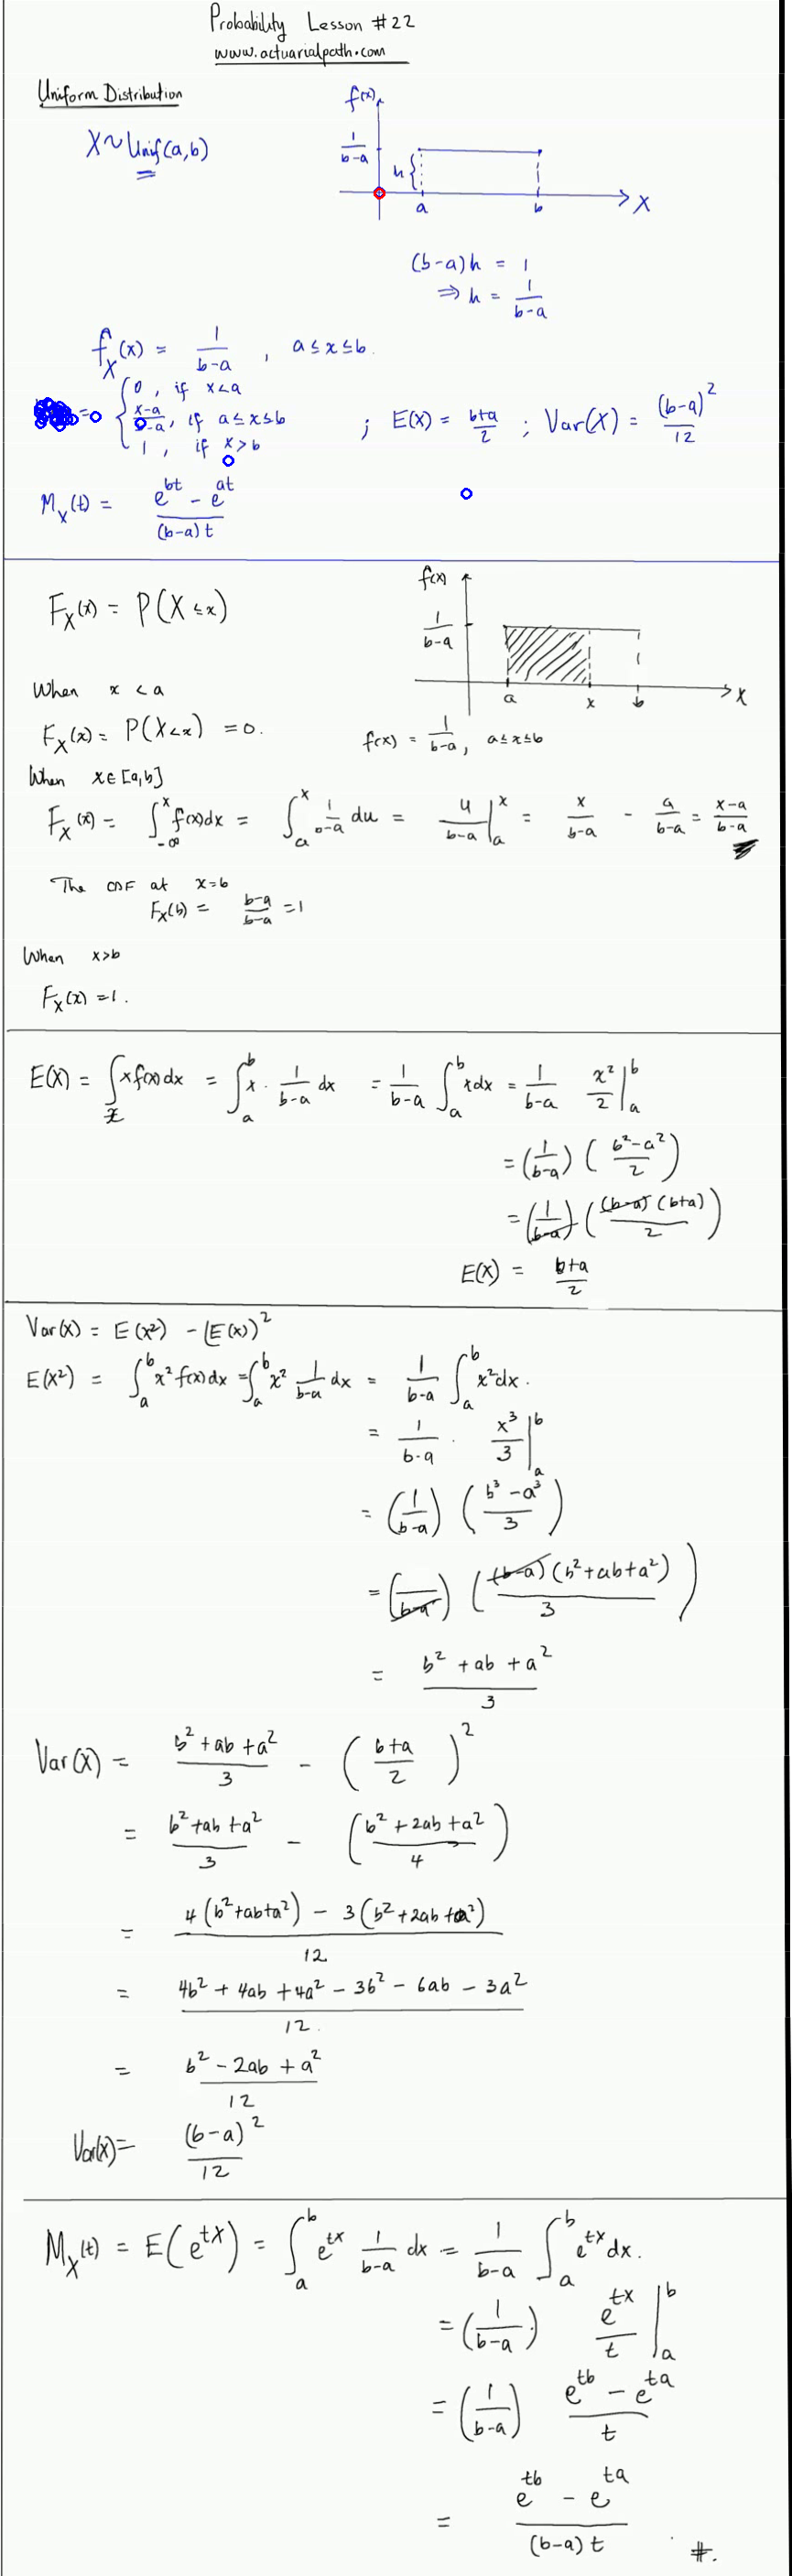 Probability Lesson #22
www.actuarialpath.com
Uniform Distribution
X ~ Unif(a,b)
f(x)
1/(b-a)
h {
a b X
(b-a)h = 1
⇒ h = 1/(b-a)
f_X(x) = 1/(b-a) , a ≤ x ≤ b.
= { 0 , if x<a
(x-a)/(b-a), if a ≤ x ≤ b ; E(X) = (b+a)/2 ; Var(X) = (b-a)²/12
1 , if x>b
M_X(t) = (e^{bt} - e^{at})/((b-a)t)
F_X(x) = P(X ≤ x)
f(x)
1/(b-a)
a x b X
When x < a
F_X(x) = P(X<x) = 0.
f(x) = 1/(b-a), a≤x≤b
When x∈[a,b]
F_X(x) = ∫_{-∞}^{x} f(x)dx = ∫_a^x 1/(b-a) du = u/(b-a) |_a^x = x/(b-a) - a/(b-a) = (x-a)/(b-a)
The CDF at x=b
F_X(b) = (b-a)/(b-a) = 1
When x>b
F_X(x) = 1.
E(X) = ∫_x x f(x) dx = ∫_a^b x · 1/(b-a) dx = 1/(b-a) ∫_a^b x dx = 1/(b-a) x²/2 |_a^b
= (1/(b-a)) ((b²-a²)/2)
= (1/(b-a)) ((b-a)(b+a)/2)
E(X) = (b+a)/2
Var(X) = E(X²) - (E(X))²
E(X²) = ∫_a^b x² f(x) dx = ∫_a^b x² 1/(b-a) dx = 1/(b-a) ∫_a^b x² dx.
= 1/(b-a) · x³/3 |_a^b
= (1/(b-a)) ((b³-a³)/3)
= (1/(b-a)) ((b-a)(b²+ab+a²)/3)
= (b²+ab+a²)/3
Var(X) = (b²+ab+a²)/3 - ((b+a)/2)²
= (b²+ab+a²)/3 - ((b²+2ab+a²)/4)
= (4(b²+ab+a²) - 3(b²+2ab+a²))/12
= (4b²+4ab+4a²-3b²-6ab-3a²)/12.
= (b²-2ab+a²)/12
Var(X) = (b-a)²/12
M_X(t) = E(e^{tX}) = ∫_a^b e^{tx} 1/(b-a) dx = 1/(b-a) ∫_a^b e^{tx} dx.
= (1/(b-a)) e^{tx}/t |_a^b
= (1/(b-a)) (e^{tb} - e^{ta})/t
= (e^{tb} - e^{ta})/((b-a)t) #.